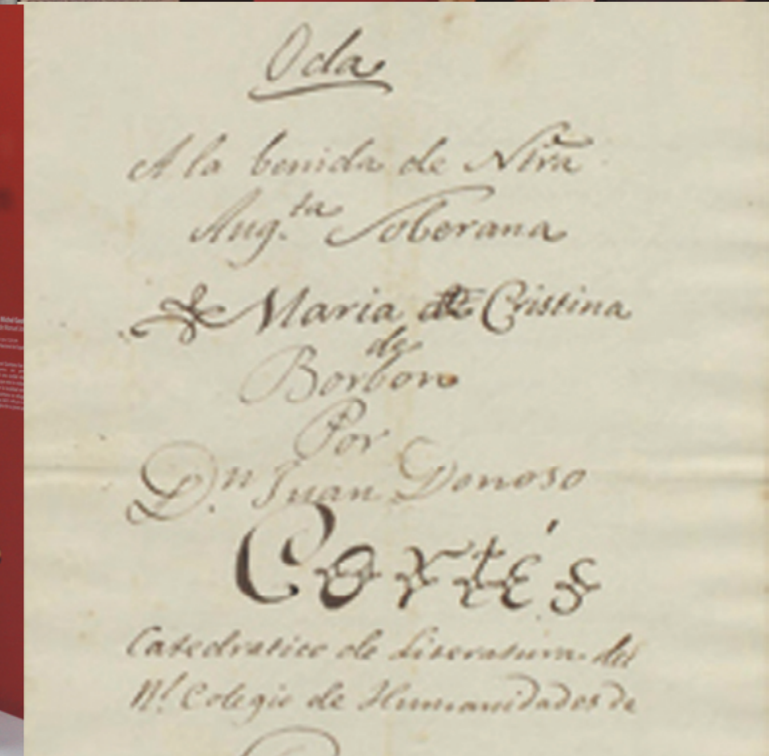 Oda
A la benida de Ntrã
Aug.ta Soberana
Maria de Cristina
de
Borbon
Por
D.n Juan Donoso
Cortés
Catedratico de Literatura del
Rl. Colegio de Humanidades de